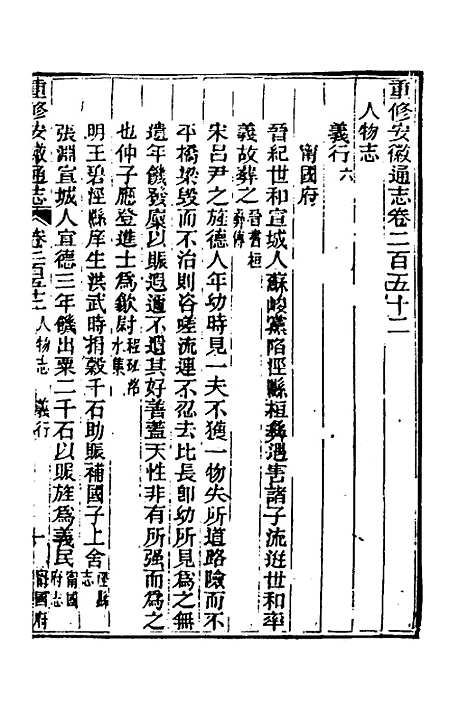 重修安徽通志卷二百五十二
人物志
義行六
甯國府
晉紀世和宣城人蘇峻黨陷涇縣桓彝遇害諸子流迸世和率
義故葬之晉書桓彝傳
宋呂尹之旌德人年幼時見一夫不獲一物失所道路險而不
平橋梁毀而不治則咨嗟流連不忍去比長卽幼所見爲之無
遺年饑發廩以賑遐邇不遺其好善蓋天性非有所强而爲之
也仲子應登進士爲歙尉程珌洺水集
明王碧涇縣庠生洪武時捐穀千石助賑補國子上舍涇縣志
張淵宣城人宣德三年饑出粟二千石以賑旌爲義民甯國府志
重修安徽通志 卷二百五十二 人物志 義行 一 甯國府